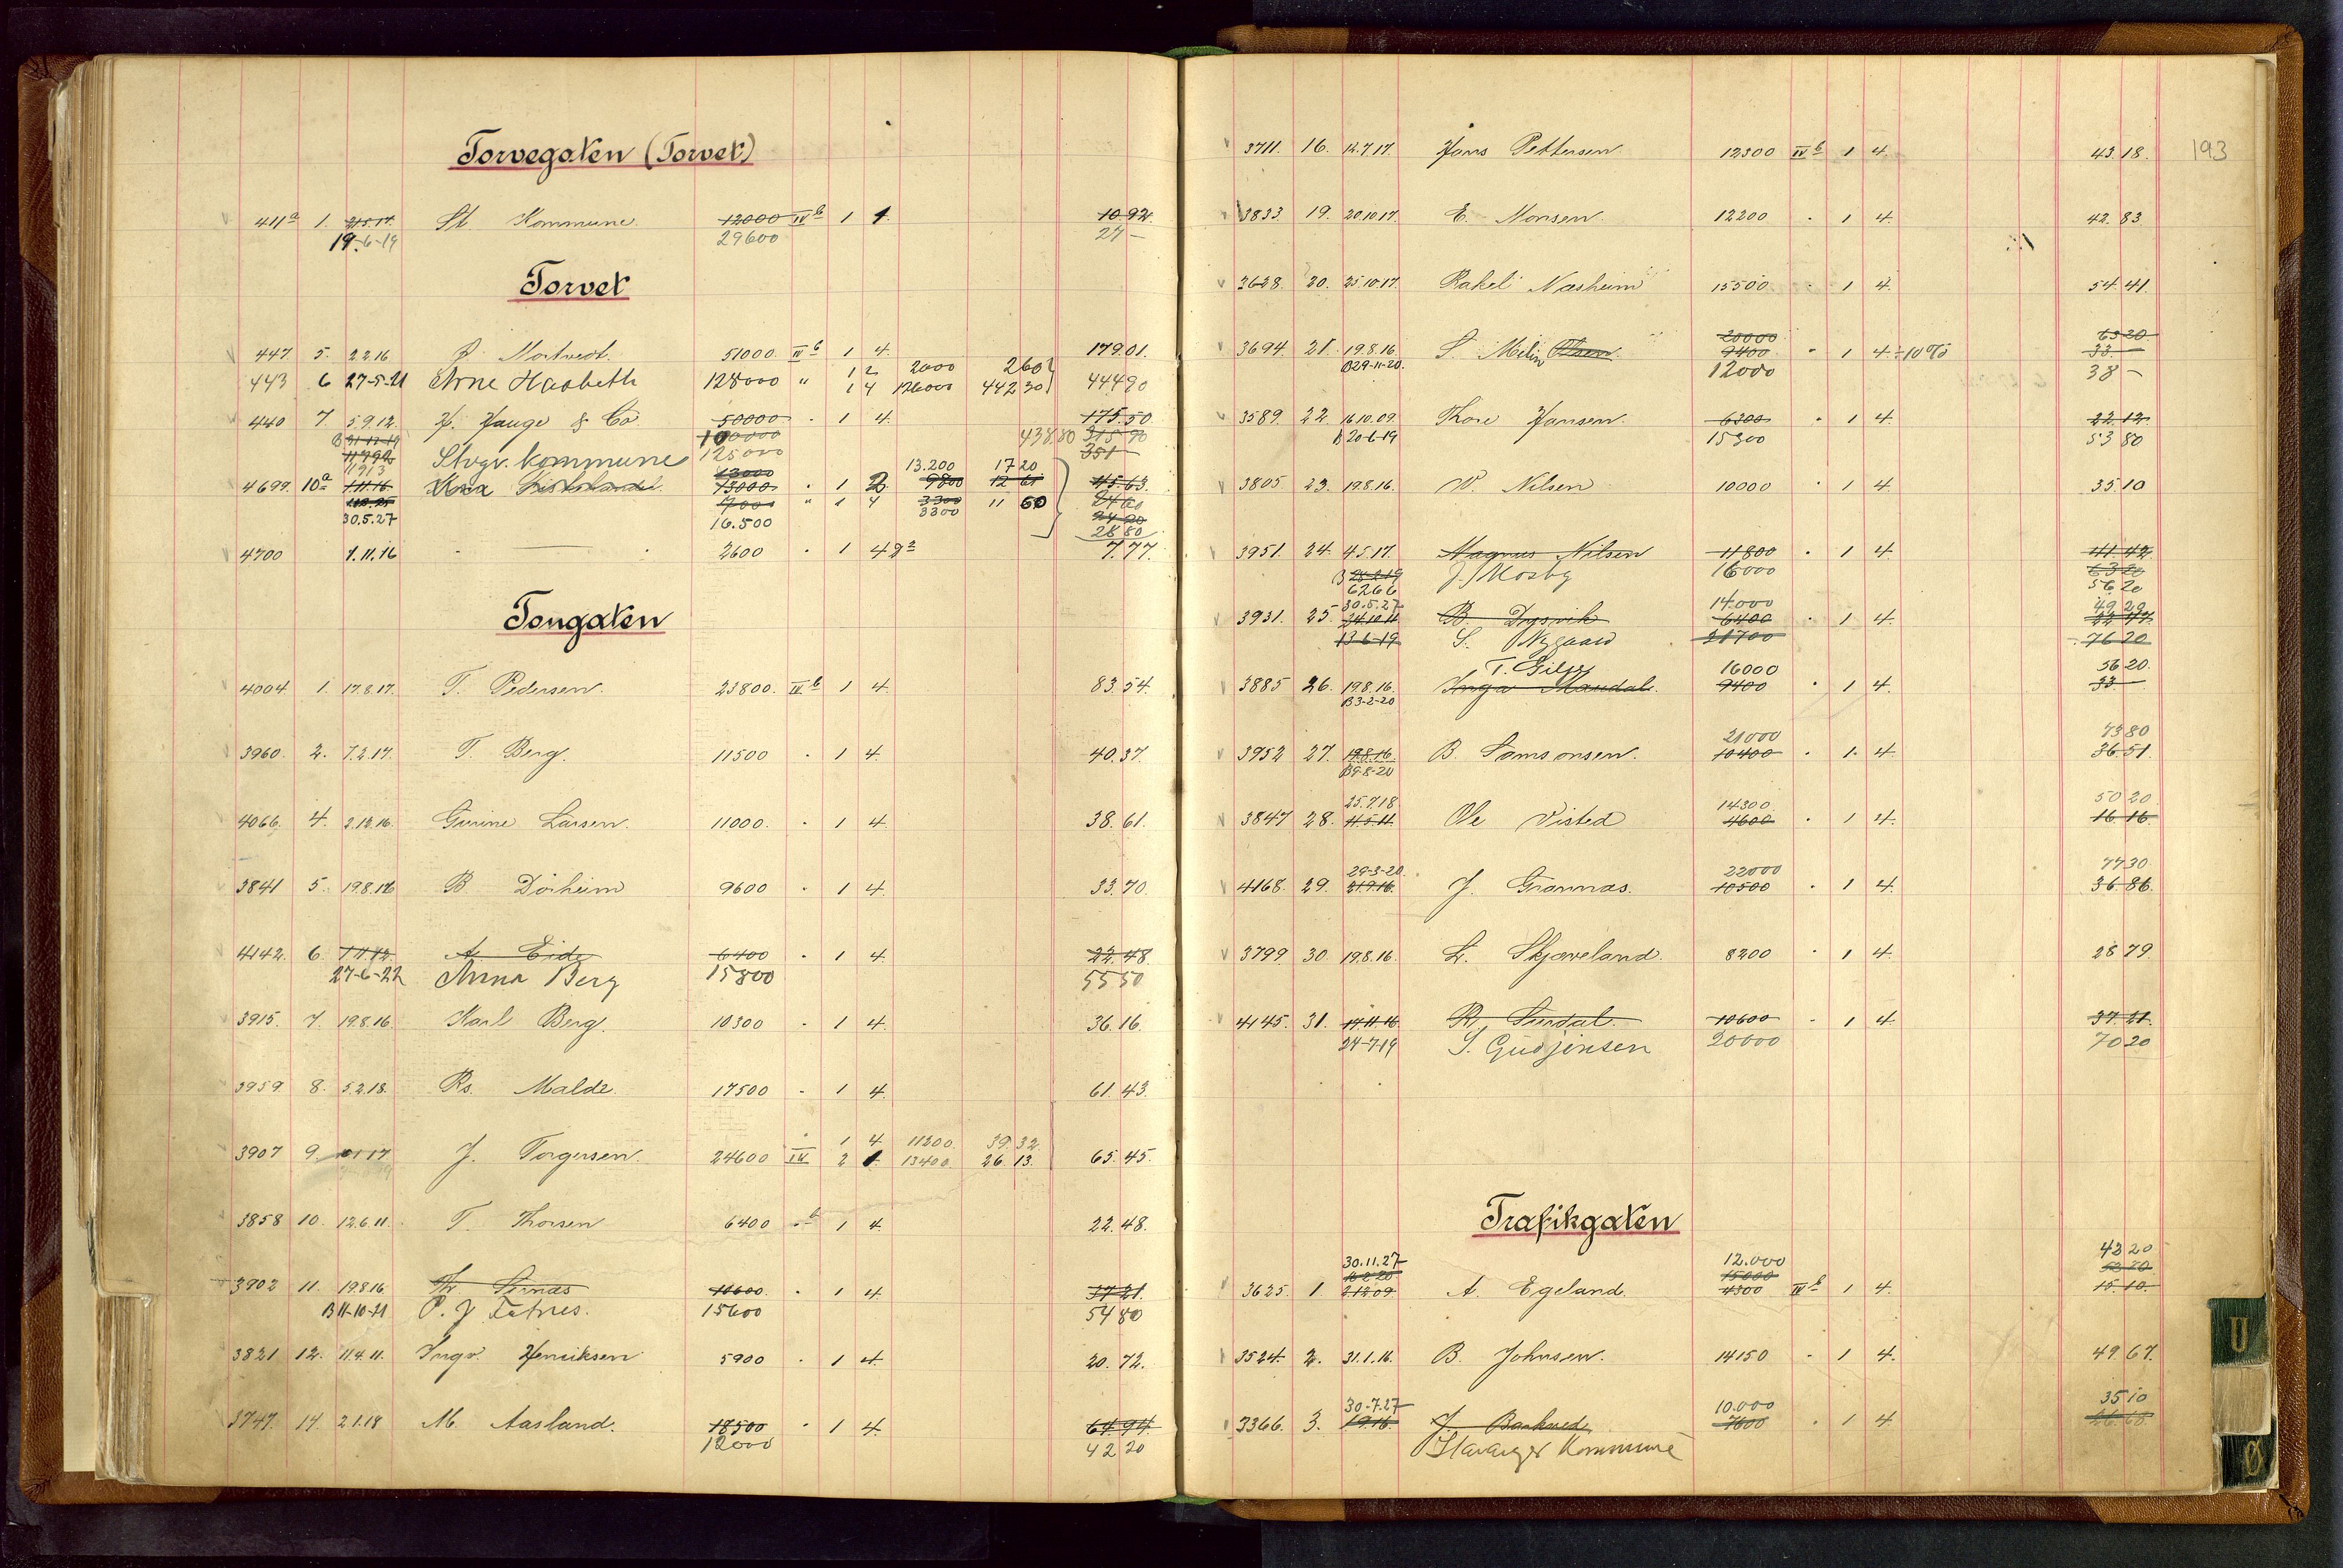 Torvegaten (Torvet)
411a 1. 21.5.17. St. Kommune. 12000 IV b 1 1 10 92
19-6-19 29600 27 –
Torvet
447 5. 2.2.16 P. Nortvedt. 51000. IV b 1 4. 179.01.
443 6 27-5-21 Arne Haabeth 128000 " 1 2 2000 2 60 444 90
1 4 126000 442 30
440 7 5.9.12. H. Hauge & Co 50000 . 1 4. 175.50
B 31-12-19 100000 438.80 315 90
Stvgr. kommune 125000 351
11913 13000 13.200 17 20
4699. 10a 1.11.16. 13000 . 1 2 9800 12 61 45.63.
7000 " 1 4 3300 11 60 24 20
30.5.27 16.500 3300 28 80
4700 1.11.16 2600 . 1 4 7.77.
Tongaten
4004 1. 17.8.17. T. Pedersen. 23800. IV b 1 4. 83.54.
3960. 2. 7.2.17. T. Berg. 11500 . 1 4. 40.37.
4066. 4. 2.12.16. Gurine Larsen. 11000. . 1 4. 38.61.
3841 5. 19.8.16 B Dørheim 9600 . 1 4. 33.70.
4142. 6. 7.11.12. A. Eide 6400 . 1 4. 22.48.
27-6-22 Anna Berg 15800 55 50
3915. 7. 19.8.16. Karl Berg. 10300 . 1 4. 36.16.
3959 8. 5.2.18. Rs. Malde. 17500 . 1 4. 61.43.
1 4 11200. 39.32
3907 9. J. Torgersen. 24600 IV 2 1 13400 26.13. 65.45.
3858 10. 12.6.11. T. Thorsen 6400 . b 1 4. 22.48.
3902 11. 19.8.16 10600. . 1 4. 37.21.
B 11-10-21 P. J. 15600 54 80
3821 12. 11.4.11. Ingv. Henriksen 5900 . 1 4. 20.72.
3747. 14. 2.1.18 M. Aasland. 18500 . 1 4. 64.94.
12000 42 20
193
3711. 16. 12.7.17. Hans Pettersen. 12300 IV b 1 4. 43.18.
3833. 19. 20.10.17. E. Monsen. 12200 . 1 4. 42.83.
3628. 20. 25.10.17. Rakel Næsheim 15500 . 1 4. 54.41.
20000 63 20
3694 21. 19.8.16. S. Meling Olsen. 9400 . 1 4 ÷10% 33
B 29-11-20. 12000 38 –
3589. 22. 16.10.09. Thore Hansen. 6300 . 1 4. 22.12
B 20-6-19 15300 53 80
3805 23. 19.8.16. N. Nilsen 10000 . 1 4. 35.10
3951. 24. 4.5.17. Magnus Nilsen 11800 . 1 4. 41.42.
B 28-2-19 J. Mosby 16000 63 20
6266 56 20
30.5.27 14.000 49 20
3931. 25. 24.10.11 6400 . 1 4. 22 47.
13-6-19 S. Nygaard 21700 76 20
T. Gilje 16000 56 20
3885 26. 19.8.16. Inga Maudal. 9400 . 1 4. 33
B 3-2-20
21000 73 80
3952 27. 19.8.16. B. Samsonsen. 10400 . 1. 4. 36.51.
B 9-8-20
25.7.18. 14300 50 20
3847 28. 11.5.11. Ole Visted 4600 . 1 4. 16.16.
29-3-20. 22000 77 30
4168. 29. 21.9.16. J. Grannæs. 10500 . 1 4. 36.86.
3799 30 19.8.16. L. Skjæveland. 8200 . 1 4. 28 79.
4145. 31. 17.11.16 R. Surdal. 10600 . 1 4. 37.21.
24-7-19 S. Gudjonsen 20000 70 20
Trafikgaten
30.11.27 12.000 42 20
15000
3625. 1 2.12.09 A. Egeland. 4300 IV b 1 4. 15.10.
3524 2. 31.1.16. B. Johnsen. 14150 . 1 4. 49.67.
30-7-27 10.000 35 10
3366. 3. 1.9.16. 7600 . 1 4
Stavanger Kommune
U
Ø